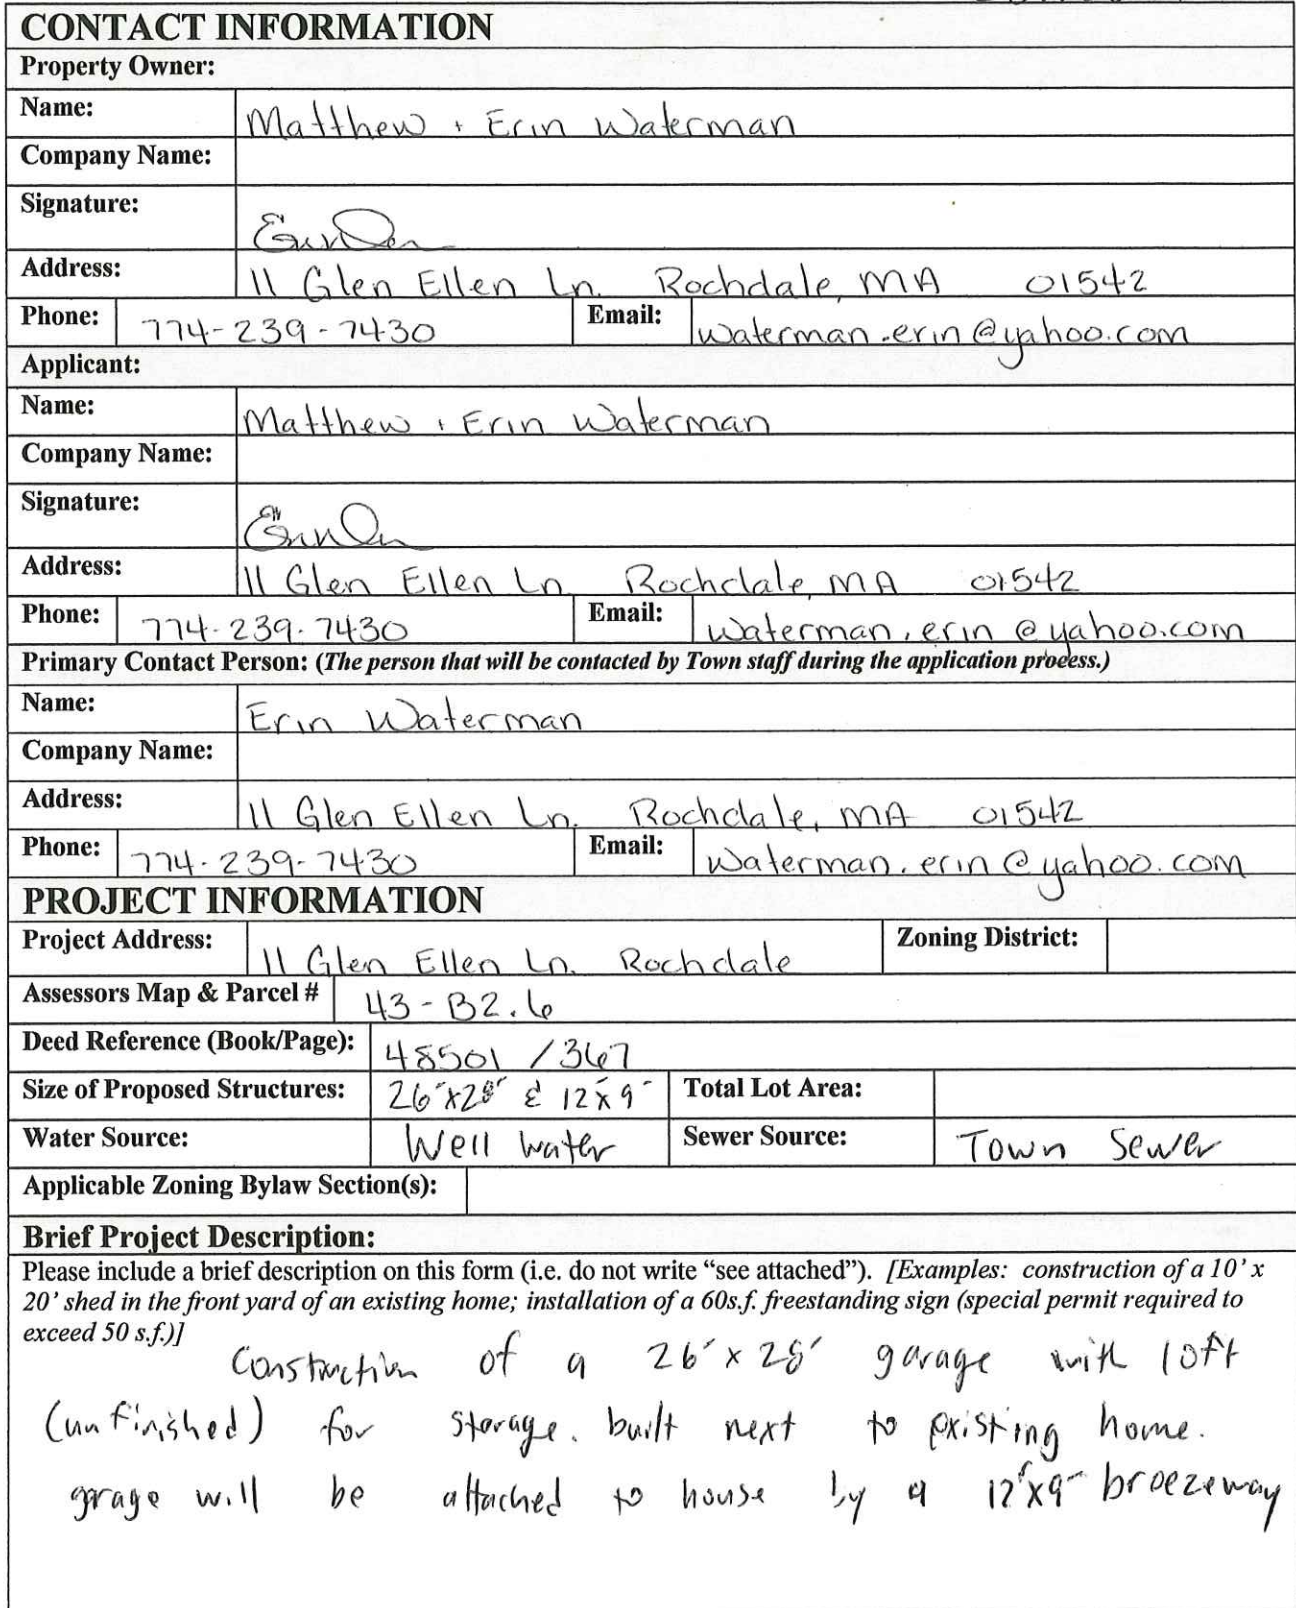 CONTACT INFORMATION
Property Owner:
Name: Matthew + Erin Waterman
Company Name:
Signature:
Address: 11 Glen Ellen Ln. Rochdale, MA 01542
Phone: 774-239-7430 Email: waterman.erin@yahoo.com
Applicant:
Name: Matthew + Erin Waterman
Company Name:
Signature:
Address: 11 Glen Ellen Ln Rochdale, MA 01542
Phone: 774-239-7430 Email: waterman.erin@yahoo.com
Primary Contact Person: (The person that will be contacted by Town staff during the application process.)
Name: Erin Waterman
Company Name:
Address: 11 Glen Ellen Ln. Rochdale, MA 01542
Phone: 774-239-7430 Email: waterman.erin@yahoo.com
PROJECT INFORMATION
Project Address: 11 Glen Ellen Ln. Rochdale Zoning District:
Assessors Map & Parcel # 43-B2.6
Deed Reference (Book/Page): 48501 /367
Size of Proposed Structures: 26'x28' & 12'x9' Total Lot Area:
Water Source: Well water Sewer Source: Town Sewer
Applicable Zoning Bylaw Section(s):
Brief Project Description:
Please include a brief description on this form (i.e. do not write “see attached”). [Examples: construction of a 10’ x
20’ shed in the front yard of an existing home; installation of a 60s.f. freestanding sign (special permit required to
exceed 50 s.f.)]
Construction of a 26' x 28' garage with loft
(unfinished) for storage. built next to existing home.
garage will be attached to house by a 12'x9' breezeway